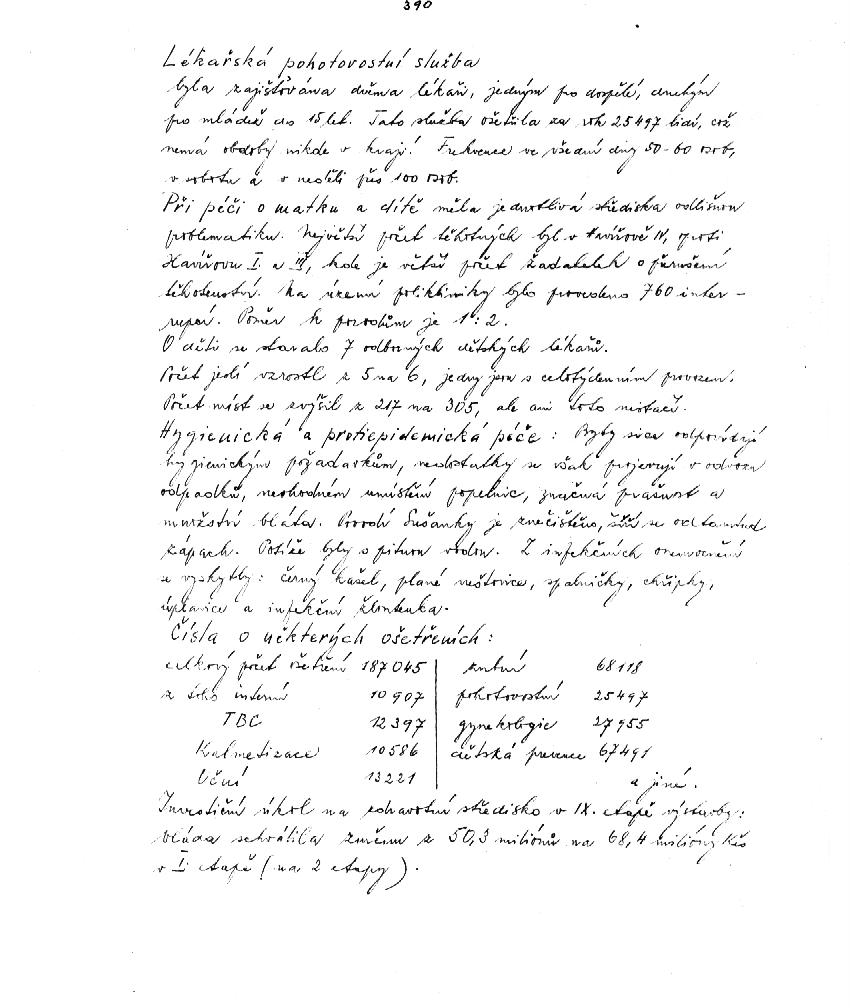 390
Lékařská pohotovostní služba
byla zajišťována dvěma lékaři, jedným pro dospělé, druhým
pro mládež do 15 let. Tato služba ošetřila za rok 25497 lidí, což
nemá obdoby nikde v kraji! Frekvence ve všední dny 50-60 osob,
v sobotu a v neděli přes 100 osob.
Při péči o matku a dítě měla jednotlivá střediska odlišnou
problematiku. Největší počet těhotných byl v Havířově IV, oproti
Havířovu I. a III, kde je větší počet žadatelek o přerušení
těhotenství. Na území polikliniky bylo provedeno 760 inter-
rupcí. Poměr k porodům je 1:2.
O děti se staralo 7 odborných dětských lékařů.
Počet jeslí vzrostl z 5 na 6, jedny jsou s celotýdenním provozem.
Počet míst se zvýšil z 217 na 305, ale ani toto nestačí.
Hygienická a protiepidemická péče: Byty sice odpovídají
hygienickým požadavkům, nedostatky se však projevují v odvozu
odpadků, nevhodném umístění popelnic, značná prašnost a
množství bláta. Povodí Sušanky je znečištěno, šíří se odtamtud
zápach. Potíže byly s pitnou vodou. Z infekčních onemocnění
se vyskytly: černý kašel, plané neštovice, spalničky, chřipky,
úplavice a infekční žloutenka.
Čísla o některých ošetřeních:
celkový počet ošetření 187045 zubní 68118
z toho interní 10907 pohotovostní 25497
TBC 12397 gynekologie 27955
Kalmetizace 10586 dětská prevence 67491
Oční 13221 a jiné.
Investiční úkol na zdravotní středisko v IX. etapě výstavby:
vláda schválila změnu z 50,3 miliónů na 68,4 milióny Kčs
v I. etapě (na 2 etapy).